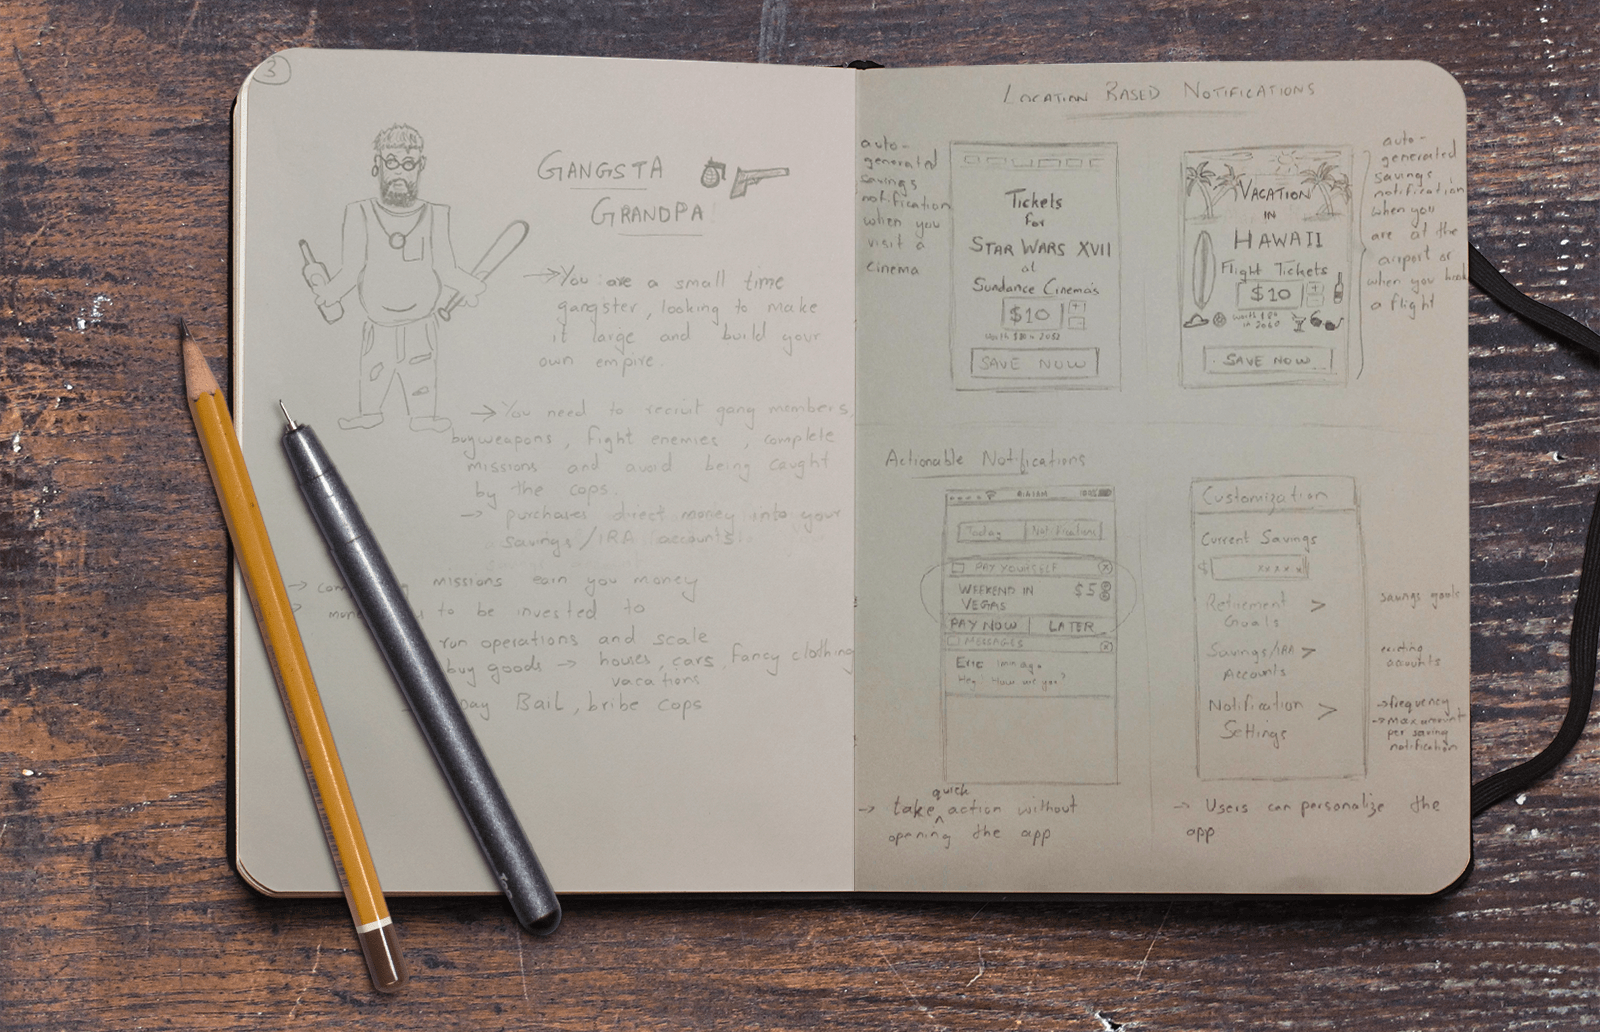 3
GANGSTA
GRANDPA
→ You are a small time
gangster, looking to make
it large and build your
own empire.
→ You need to recruit gang members,
buy weapons, fight enemies, complete
missions and avoid being caught
by the cops.
→ purchases direct money into your
savings/IRA accounts.
→ missions earn you money
→ to be invested to
run operations and scale
buy goods → houses, cars, fancy clothing
vacations
pay Bail, bribe cops
LOCATION BASED NOTIFICATIONS
auto-
generated
savings
notification
when you
visit a
cinema
Tickets
for
STAR WARS XVII
at
Sundance Cinema's
$10
+
-
SAVE NOW
VACATION
IN
HAWAII
Flight Tickets
$10
+
-
worth $80
in 2060
SAVE NOW
auto-
generated
savings
notification
when you
are at the
airport or
when you book
a flight
Actionable Notifications
Today
Notifications
PAY YOURSELF
WEEKEND IN $5
VEGAS
PAY NOW
LATER
MESSAGES
Eric 1min ago
Hey! How are you?
quick
→ take ^ action without
opening the app
Customization
Current Savings
$ xxxxx
Retirement >
Goals
Savings/IRA >
Accounts
Notification >
Settings
savings goals
existing
accounts
→ frequency
→ max amount
per saving
notification
→ Users can personalize the
app